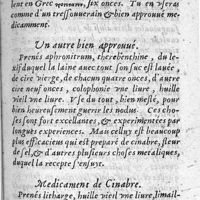 lent en Grec , sex onces. Tu en vseras
comme d'un tressouuerain & bien approuué me-
dicamment.
Un autre bien approuué.
Prenés aphronitrum, therebenthine, du le-
xif duquel la laine auec tout son suc est lauée,
de cire vierge, de chacun quatre onces, d'autre
cire neuf onces, colophonie vne liure, huille
vieil vne liure. V se du tout, bien meslé, pour
bien heureusement guerir les nodus. Ces cho-
ses sont fort excellantes, & experimentées par
longues experiences. Mau celluy est beaucoup
plus efficacieux qui est preparé de cinabre, fleur
de sel, & d'autres plusieurs choses metaliques,
duquel la recepte s'ensuyt.
Medicament de Cinabre.
Prenés litharge, huille vieil vne liure, limail-